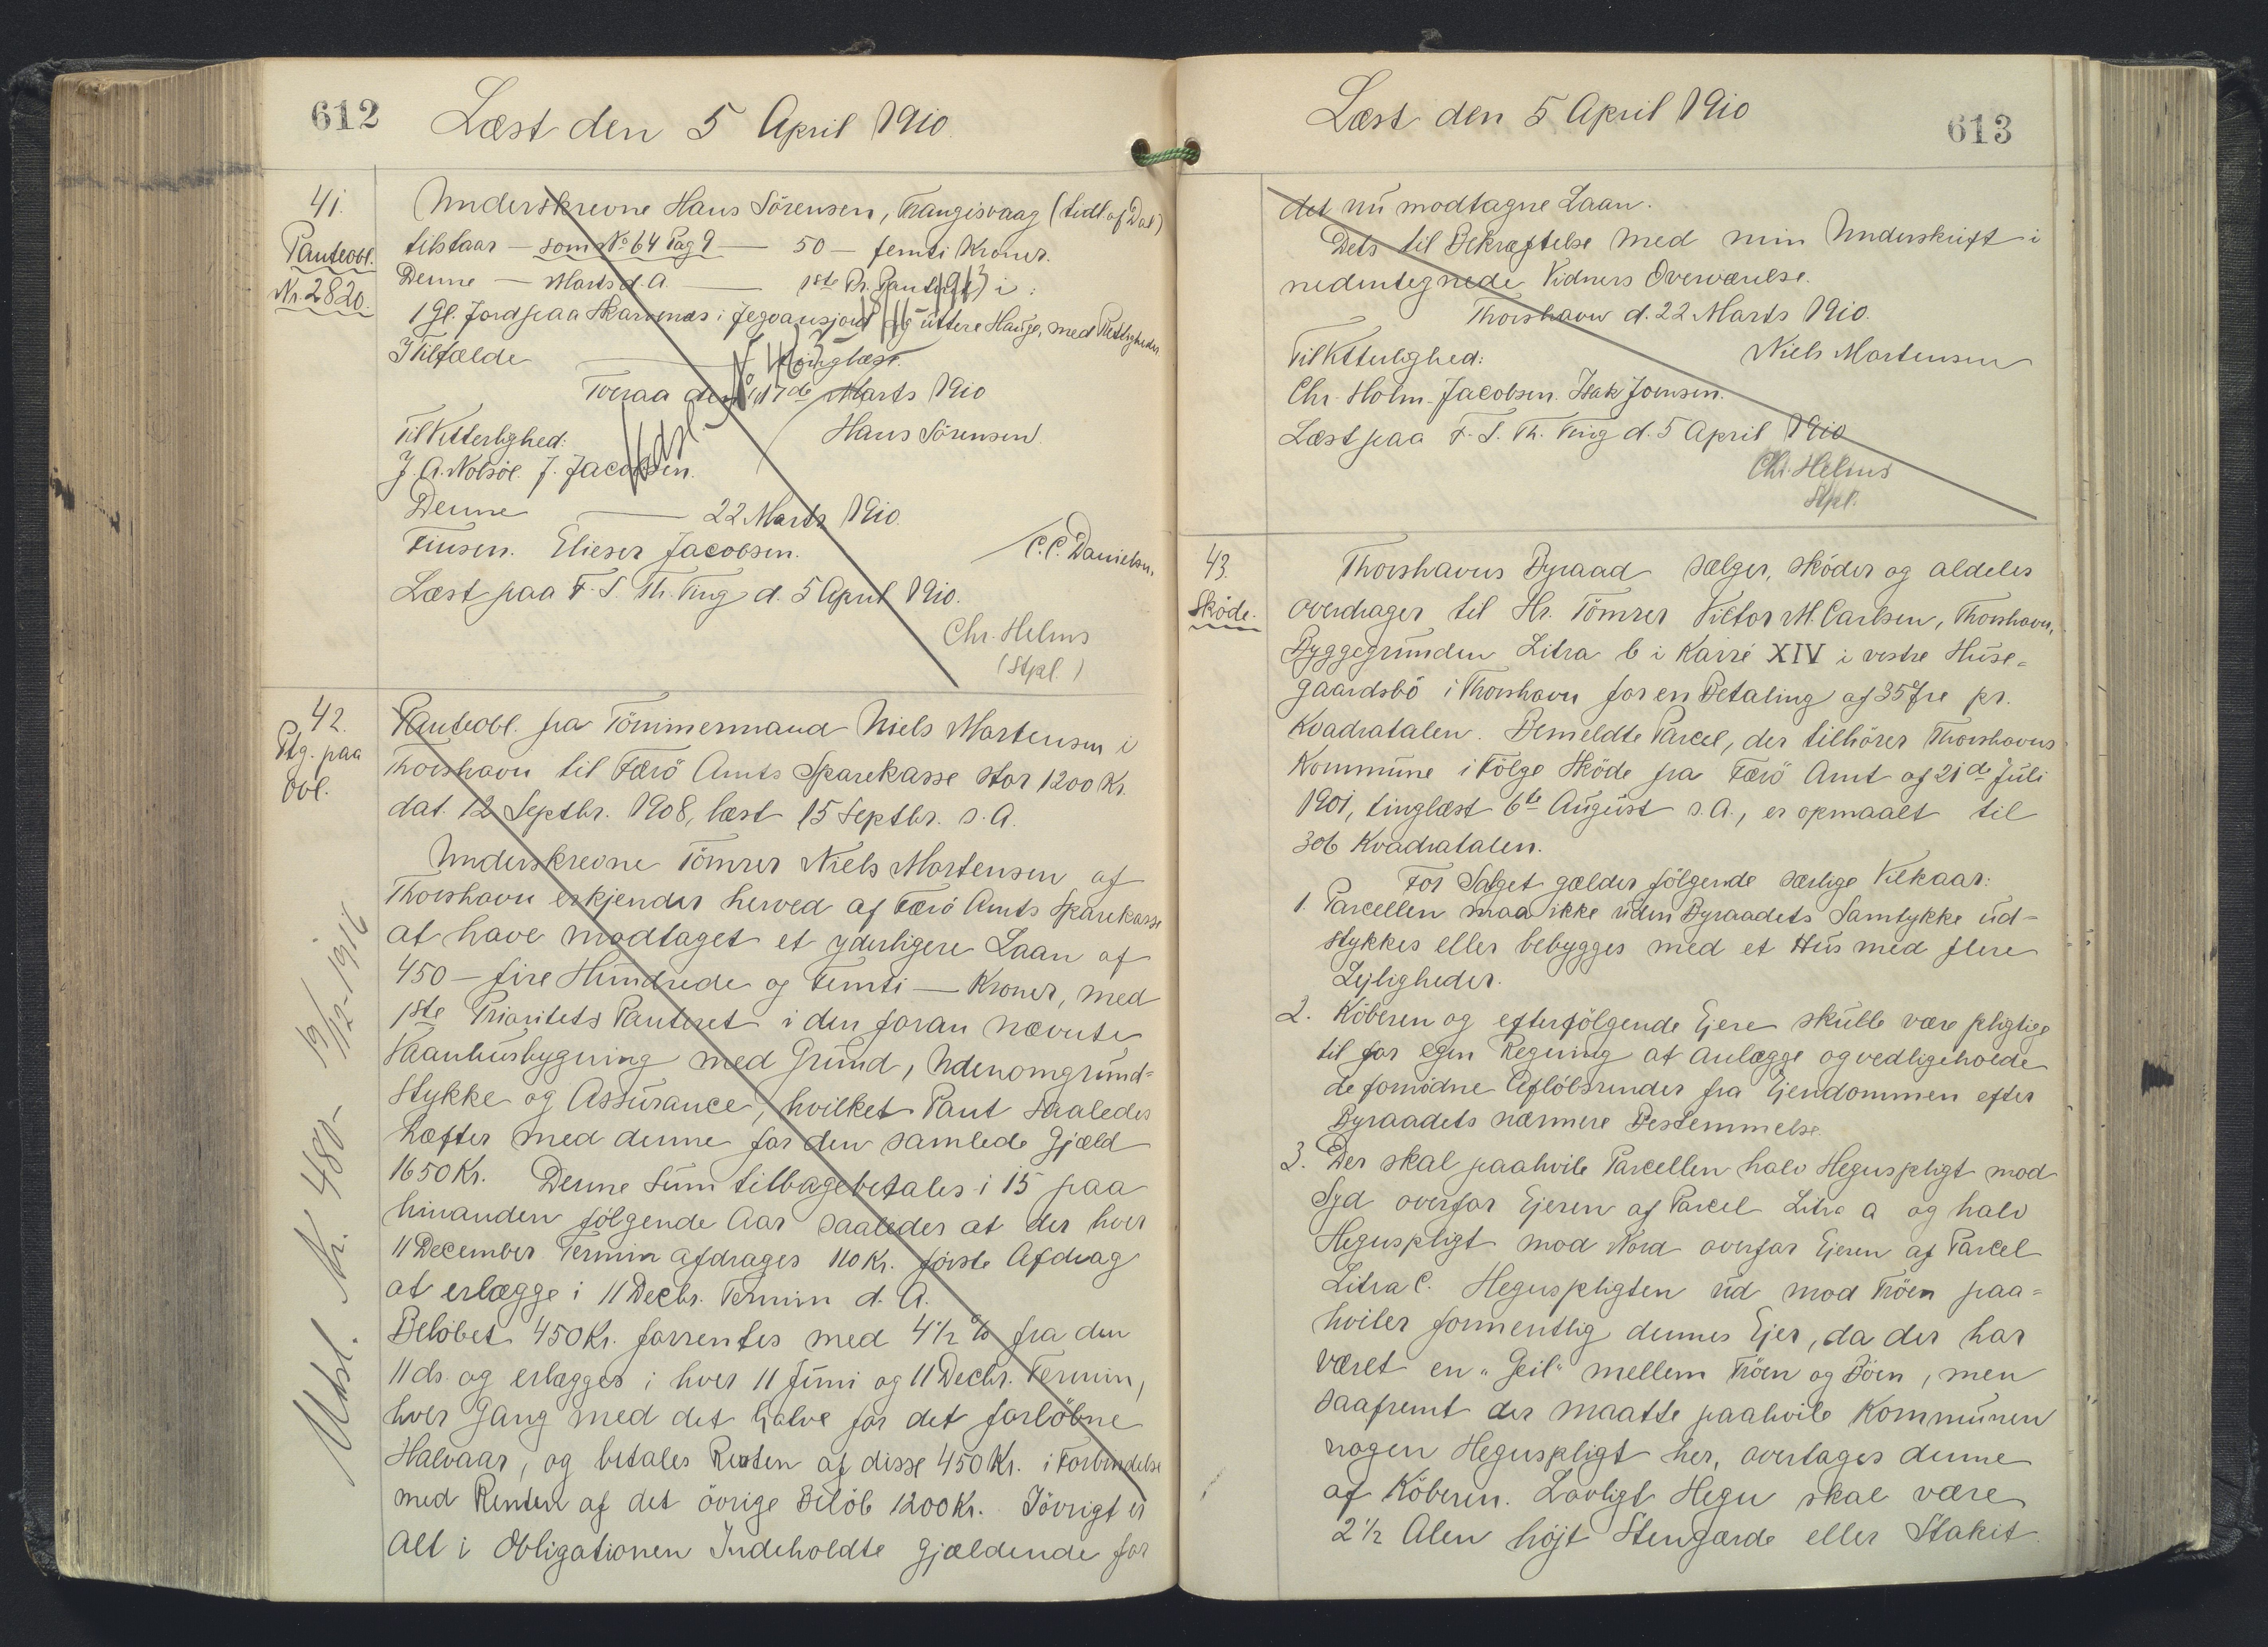 612
Læst den 5 April 1910.
41.
Panteobl.
Nr. 2820.
Underskrevne Hans Sörensen, Trangisvaag (tidl. af Dal)
tilstaar — som No 64 Pag 9 — 50 — femti Kroner.
Denne — Marts d. A. — 1ste Pr. Panteret i:
1 Gl. Jord paa Skarvenæs i Jegvansjord og üttere Hauge, med Rettigheder
I Tilfælde — tinglæst.
Tveraa den 17de Marts 1910
Til Vitterlighed: Hans Sörensen.
J. A. Nolsöe. J. Jacobsen.
Denne — 22 Marts 1910.
Finsen. Elieser Jacobsen. C. C. Danielsen.
Læst paa F. S. Th. Ting d. 5 April 1910.
Chr. Helms
(Stpl.)
Udsl.
18/11 1913
42.
Ptg. paa
Obl.
Panteobl. fra Tömmermand Niels Mortensen i
Thorshavn til Færö Amts Sparekasse stor 1200 Kr.
dat. 12 Septbr. 1908, læst 15 Septbr. s. A.
Underskrevne Tömrer Niels Mortensen af
Thorshavn erkjender herved af Færö Amts Sparekasse
at have modtaget et yderligere Laan af
450 — fire Hundrede og Femti — Kroner, med
1ste Prioritets Panteret i den foran nævnte
Vaanhusbygning med Grund, Udenomgrund=
stykke og Assurance, hvilket Pant saaledes
hæfter med denne for den samlede Gjæld
1650 Kr. Denne Sum tilbagebetales i 15 paa
hinanden fölgende Aar saaledes at der hver
11 December Termin afdrages 110 Kr. förste Afdrag
at erlægge i 11 Decbr. Termin d. A.
Belöbet 450 Kr. forrentes med 4½ % fra den
11 ds. og erlægges i hver 11 Juni og 11 Decbr. Termin,
hver Gang med det halve for det forlöbne
Halvaar, og betales Renten af disse 450 Kr. i Forbindelse
med Renten af det övrige Belöb 1200 Kr. Iövrigt er
Alt i Obligationen Indeholdte gjældende for
Udsl. Kr. 480- 19/12-1916
Læst den 5 April 1910
613
det nu modtagne Laan.
Dets til Bekræftelse med min Underskrift i
nedentegnede Vidners Overværelse.
Thorshavn d. 22 Marts 1910.
Til Vitterlighed: Niels Mortensen
Chr. Holm-Jacobsen. Isak Joensen.
Læst paa F. S. Th. Ting d. 5 April 1910
Chr. Helms
Stpl.
43.
Sköde.
Thorshavns Byraad sælger, sköder og aldeles
overdrager til Hr. Tömrer Viktor M. Carlsen, Thorshavn,
Byggegrunden Litra b i Karré XIV i vestre Huse=
gaardsbö i Thorshavn for en Betaling af 35 Øre pr.
Kvadratalen. Bemeldte Parcel, der tilhörer Thorshavns
Kommune i Fölge Sköde fra Færö Amt af 21de Juli
1901, tinglæst 6te August s. A., er opmaalt til
306 Kvadratalen.
For Salget gælder fölgende særlige Vilkaar:
1. Parcellen maa ikke uden Byraadets Samtykke ud-
stykkes eller bebygges med et Hus med flere
Lejligheder.
2. Köberen og efterfölgende Ejere skulle være pligtige
til for egen Regning at anlægge og vedligeholde
de fornödne Aflöbsrender fra Ejendommen efter
Byraadets nærmere Bestemmelse.
3. Der skal paahvile Parcellen halv Hegnspligt mod
Syd overfor Ejeren af Parcel Litra a og halv
Hegnspligt mod Nord overfor Ejeren af Parcel
Litra C. Hegnspligten ud mod Tröen paa=
hviler formentlig dennes Ejer, da der har
været en "Geil" mellem Tröen og Böen, men
saafremt der maatte paahvile Kommunen
nogen Hegnspligt her, overtages denne
af Köberen. Lovligt Hegn skal være
2½ Alen höjt Stengærde eller Stakit